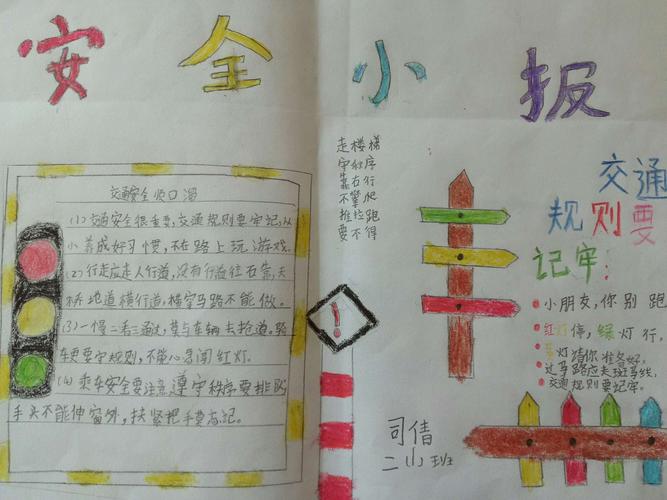 安全小报
交通安全顺口溜
(1)交通安全很重要,交通规则要牢记,从
小养成好习惯,不在路上玩游戏.
(2)行走应走人行道,没有行道往右靠,天
桥地道横行道,横穿马路不能做。
(3)一慢二看三通过,莫与车辆去抢道。
车更要守规则,不能心急闯红灯.
(4)乘车安全要注意,遵守秩序要排队
手头不能伸窗外,扶紧把手莫忘记。
走楼梯
守秩序
靠右行
不攀爬
推拉跑
要不得
!
交通
规则要
记牢:
小朋友,你别跑
红灯停,绿灯行,
黄灯请你准备好.
过马路应走斑马线,
交通规则要记牢.
司倩
二 班